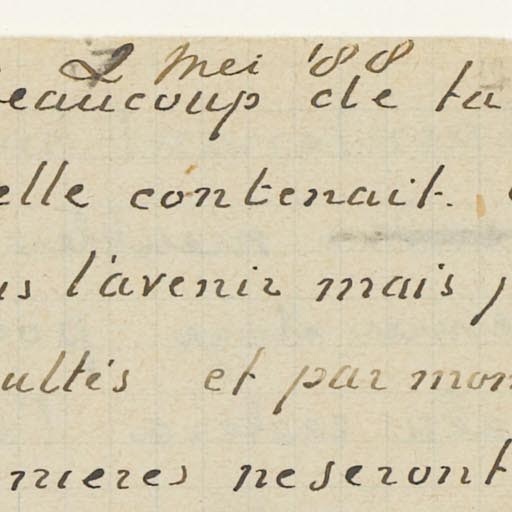 2 Mei '88
beaucoup de ta
elle contenait.
l'avenir mais
et par mon
neseront